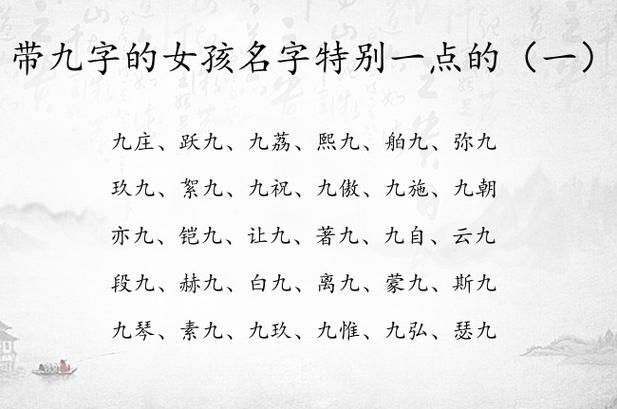 带九字的女孩名字特别一点的（一）
九庄、跃九、九荔、熙九、舶九、弥九
玖九、絮九、九祝、九傲、九施、九朝
亦九、铠九、让九、著九、九自、云九
段九、赫九、白九、离九、蒙九、斯九
九琴、素九、九玖、九惟、九弘、瑟九